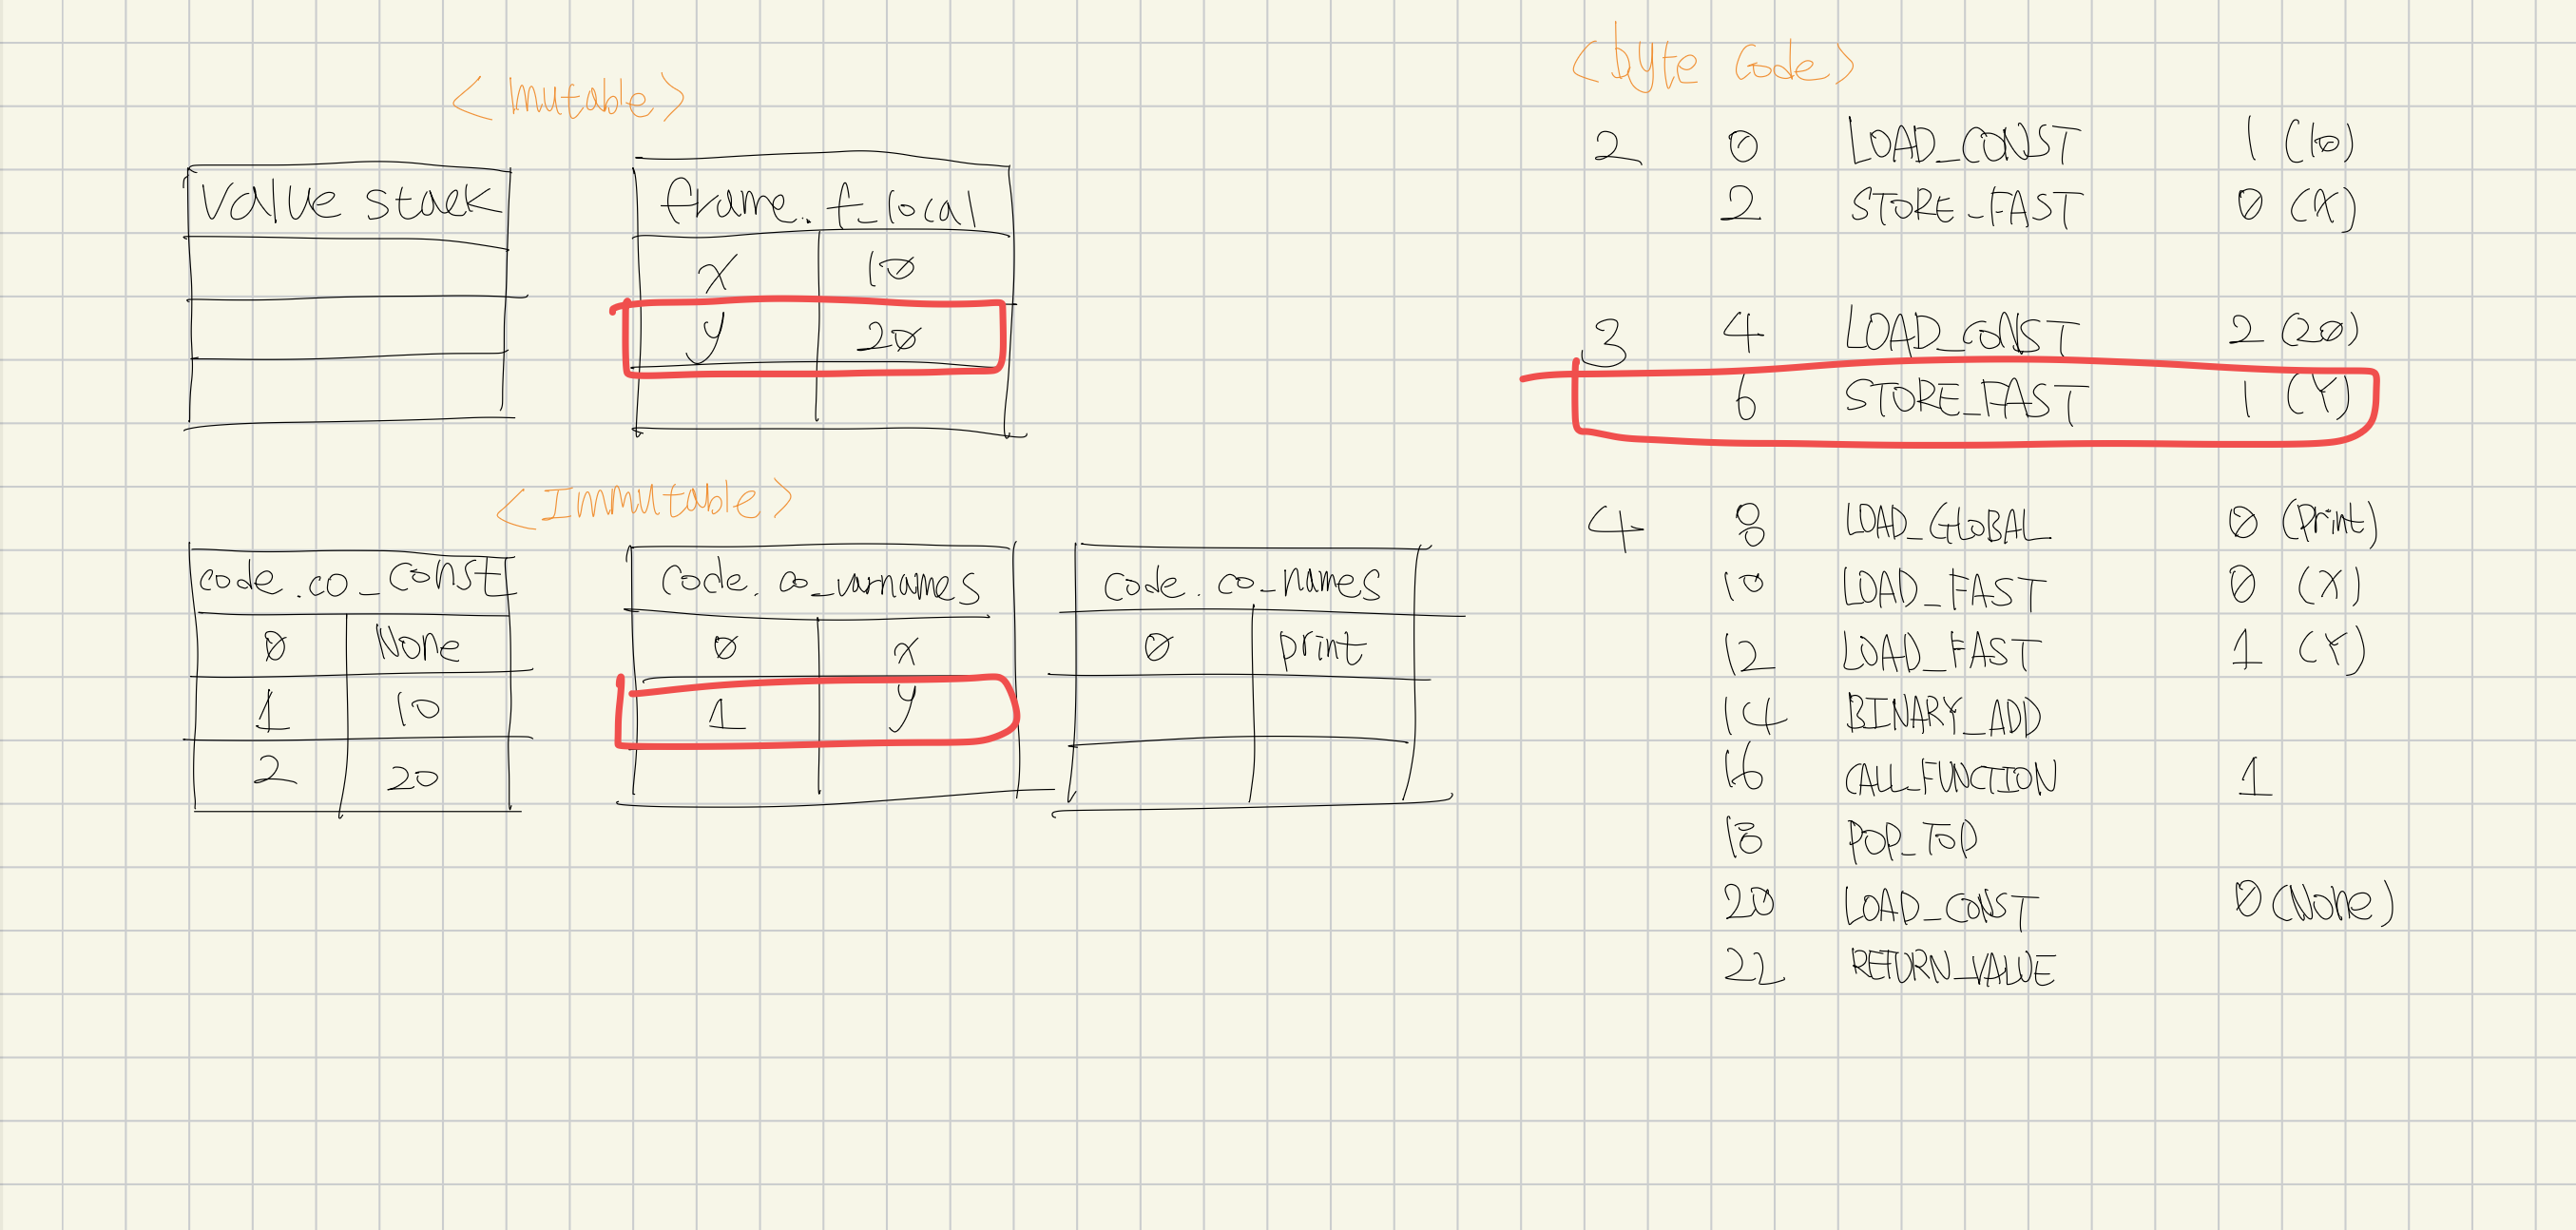 <Mutable>
Value stack
frame.f_local
x 10
y 20
<Immutable>
code.co_const
0 None
1 10
2 20
code.co_varnames
0 x
1 y
code.co_names
0 print
<byte Code>
2 0 LOAD_CONST 1 (10)
2 STORE_FAST 0 (X)
3 4 LOAD_CONST 2 (20)
6 STORE_FAST 1 (Y)
4 8 LOAD_GLOBAL 0 (Print)
10 LOAD_FAST 0 (X)
12 LOAD_FAST 1 (Y)
14 BINARY_ADD
16 CALL_FUNCTION 1
18 POP_TOP
20 LOAD_CONST 0 (None)
22 RETURN_VALUE